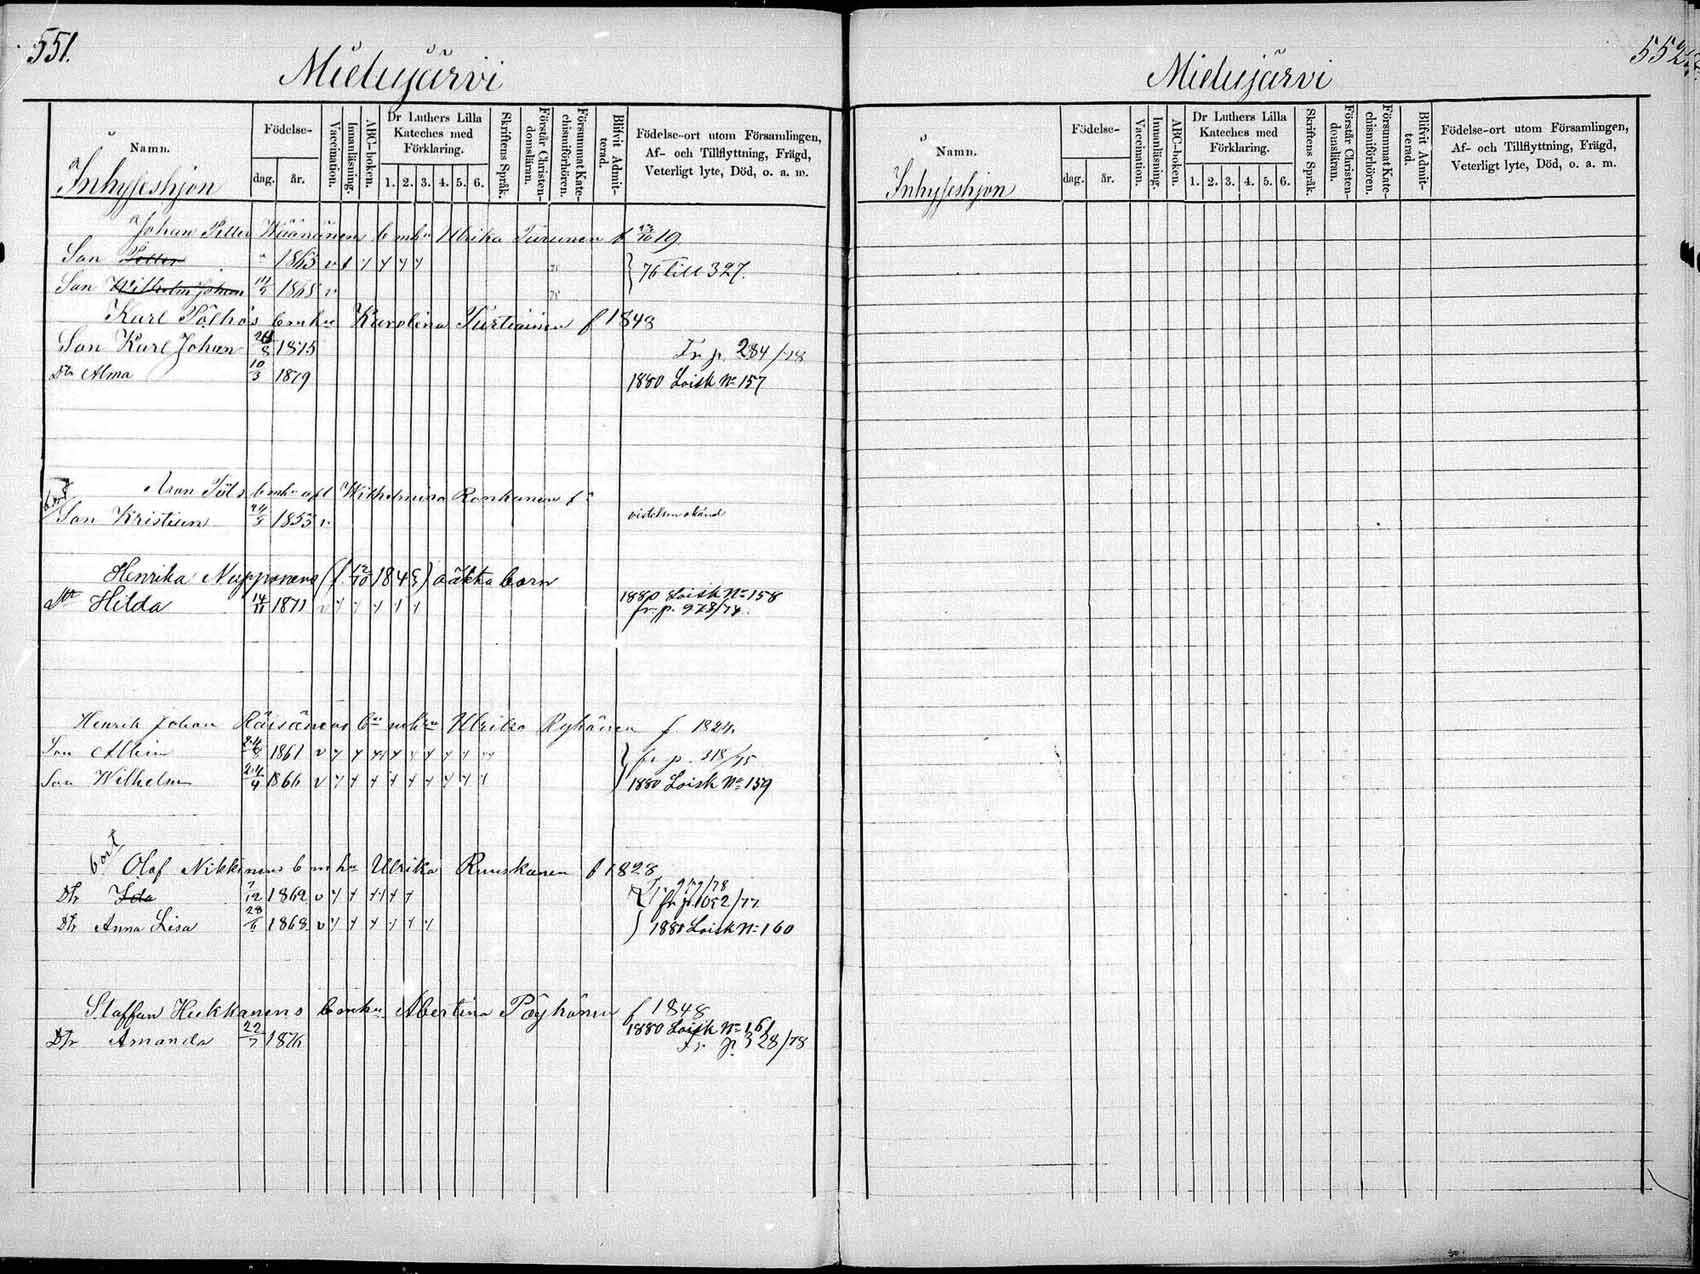 551.
Mielujärvi
Namn.
Inhyseshjon
Födelse-
dag. år.
Vaccination.
Innanläsning.
ABC-boken.
Dr Luthers Lilla
Kateches med
Förklaring.
1. 2. 3. 4. 5. 6.
Skriftens Språk.
Förstår Christen-
domsläran.
Försummat Kate-
chismiförhören.
Blifvit Admit-
terad.
Födelse-ort utom Församlingen,
Af- och Tillflyttning, Frägd,
Veterligt lyte, Död, o. a. m.
Johan Petter Väänänen b m hu Ulrika Turunen f 19
Son Petter 1863 v
Son Wilhelm Johan 1868 v
76 till 327.
Karl Pölhös b m hu Karolina Turtiainen f 1843
Son Karl Johan 1875 Fr p. 284/78
Dtr Alma 10/3 1879 1880 Loisk No 157
bort
Son Kristian 1853 v
Henrika Nupponens (f 12/10 1845) oäkta barn
Dtr Hilda 14/11 1871 v 1880 Loisk No 158
fr. p. 978/74.
Henrik Johan Räisänens bn m hu Ulrika Ryhänen f. 1824
Son Albin 24/8 1861 v fr p. 318/75
Son Wilhelm 24/4 1866 v 1880 Loisk No 159
bort
Olof Nikkinens b m hu Ulrika Ruuskanen f 1828
Dtr Ida 7/12 1862 v Fr. 979/78
fr. p. 1052/77
Dtr Anna Lisa 28/6 1868 v 1880 Loisk No 160
Staffan Hukkanens b m hu Albertina Pöyhönen f 1848
1880 Loisk No 161
Dtr Amanda 22/7 1876 Fr. p. 328/78
552
Mielujärvi
Namn.
Inhyseshjon
Födelse-
dag. år.
Vaccination.
Innanläsning.
ABC-boken.
Dr Luthers Lilla
Kateches med
Förklaring.
1. 2. 3. 4. 5. 6.
Skriftens Språk.
Förstår Christen-
domsläran.
Försummat Kate-
chismiförhören.
Blifvit Admit-
terad.
Födelse-ort utom Församlingen,
Af- och Tillflyttning, Frägd,
Veterligt lyte, Död, o. a. m.